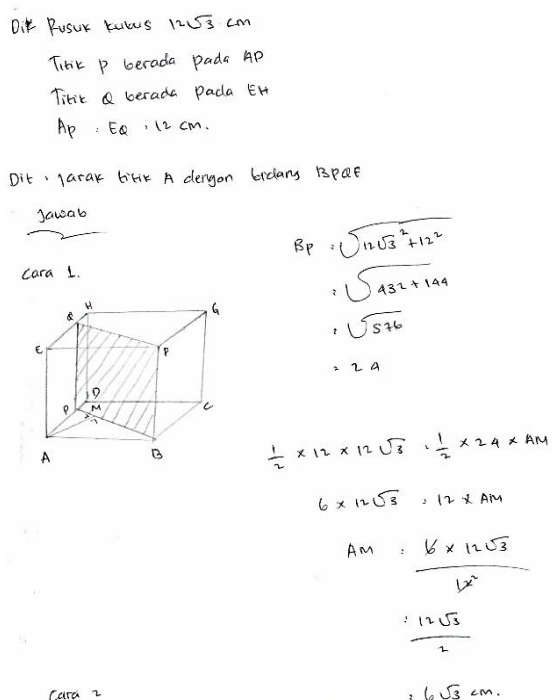 Dit Rusuk kubus 12√3 cm
Titik P berada pada AD
Titik Q berada pada EH
Ap : EQ : 12 cm.
Dit : Jarak titik A dengan bidang BPQF
Jawab
Cara 1.
H
G
Q
E
F
D
P
M
C
A
B
Bp : √12√3² + 12²
: √432 + 144
: √576
= 24
1/2 × 12 × 12√3 : 1/2 × 24 × AM
6 × 12√3 : 12 × AM
AM : 6 × 12√3 / 12 2
: 12√3 / 2
: 6√3 cm.
Cara 2